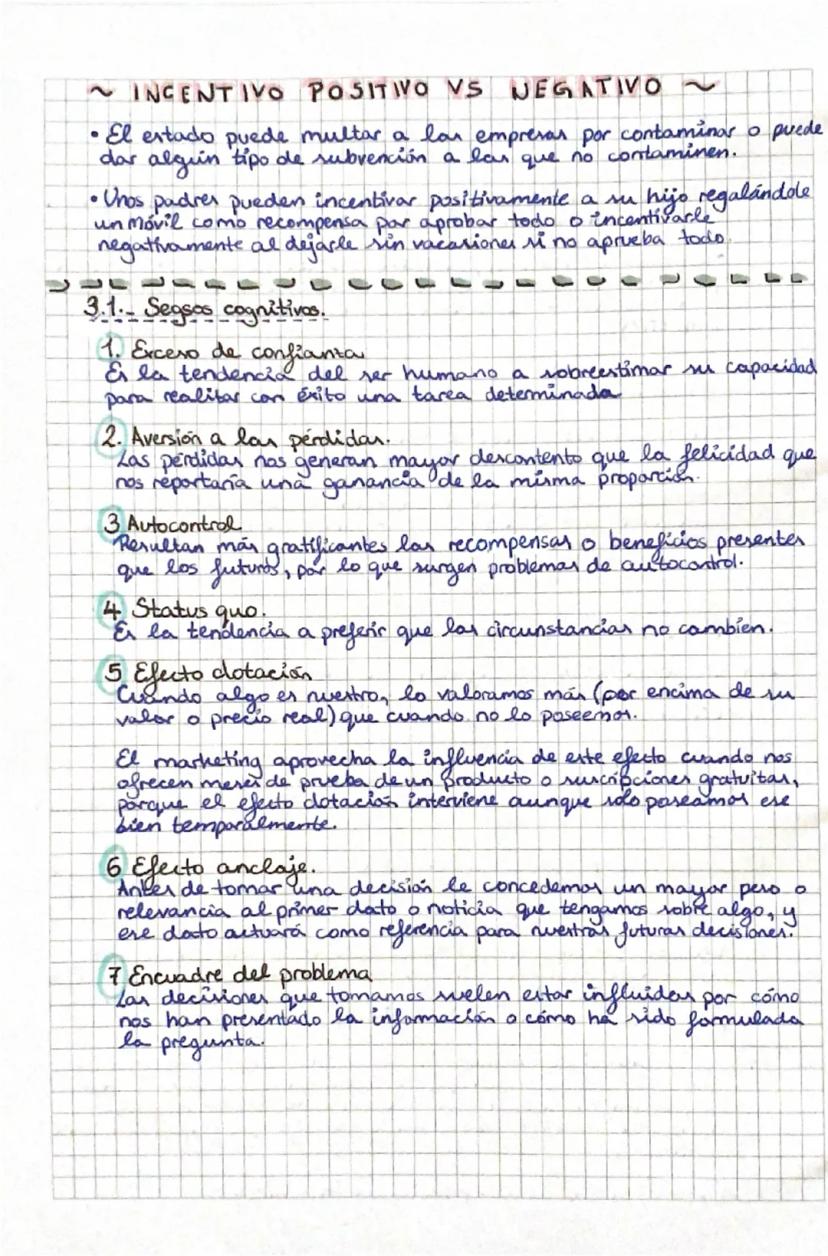 ~ INCENTIVO POSITIVO VS NEGATIVO ~
• El estado puede multar a las empresas por contaminar o puede
dar algún tipo de subvención a las que no contaminen.
• Unos padres pueden incentivar positivamente a su hijo regalándole
un móvil como recompensa por aprobar todo o incentivarle
negativamente al dejarle sin vacasiones si no aprueba todo.
3.1.- Segsos cognitivos.
1. Exceso de confianza
Es la tendencia del ser humano a sobreestimar su capacidad
para realizar con éxito una tarea determinada
2. Aversión a las pérdidas.
Las pérdidas nos generan mayor descontento que la felicidad que
nos reportaría una ganancia de la misma proporción.
3 Autocontrol
Resultan más gratificantes las recompensas o beneficios presentes
que los futuros, por lo que surgen problemas de autocontrol.
4 Status quo.
Es la tendencia a preferir que las circunstancias no cambien.
5 Efecto dotación
Cuando algo es nuestro, lo valoramos más (por encima de su
valor o precio real) que cuando no lo poseemos.
El marketing aprovecha la influencia de este efecto cuando nos
ofrecen meses de prueba de un producto o suscripciones gratuitas,
porque el efecto dotación interviene aunque solo poseamos ese
bien temporalmente.
6 Efecto anclaje.
Antes de tomar una decisión le concedemos un mayor peso o
relevancia al primer dato o noticia que tengamos sobre algo, y
ese dato actuará como referencia para nuestras futuras decisiones.
7 Encuadre del problema
Las decisiones que tomamos suelen estar influidas por cómo
nos han presentado la información o cómo ha sido formulada
la pregunta.